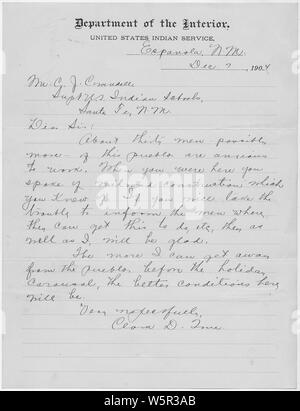 Department of the Interior,
UNITED STATES INDIAN SERVICE,
Espanola, N.M.
Dec 7, 1904
Mr. C. J. Crandall
Supt U.S. Indian Schools,
Santa Fe, N.M.
Dear Sir:
About thirty men possibly
more of this pueblo are anxious
to work. When you were here you
spoke of railroad construction which
you knew of. If you will take the
trouble to inform the men where
they can get this to do, etc, they as
well as I, will be glad.
The more I can get away
from the Pueblo before the holiday
carousal, the better conditions here
will be.
Very respectfully,
Clara D. True
alamy
Image ID: W5R3AB
www.alamy.com